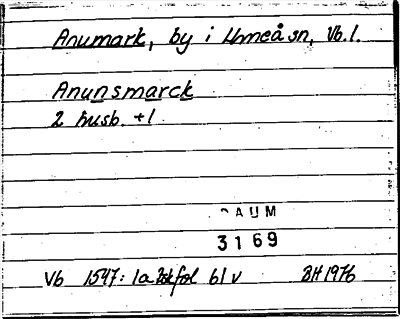 Anumark, by i Umeå sn, Vb. l.
Anunsmarck
2 husb. +1
DAUM
3169
Vb 1547: 1a bkfol 61 v BH 1976